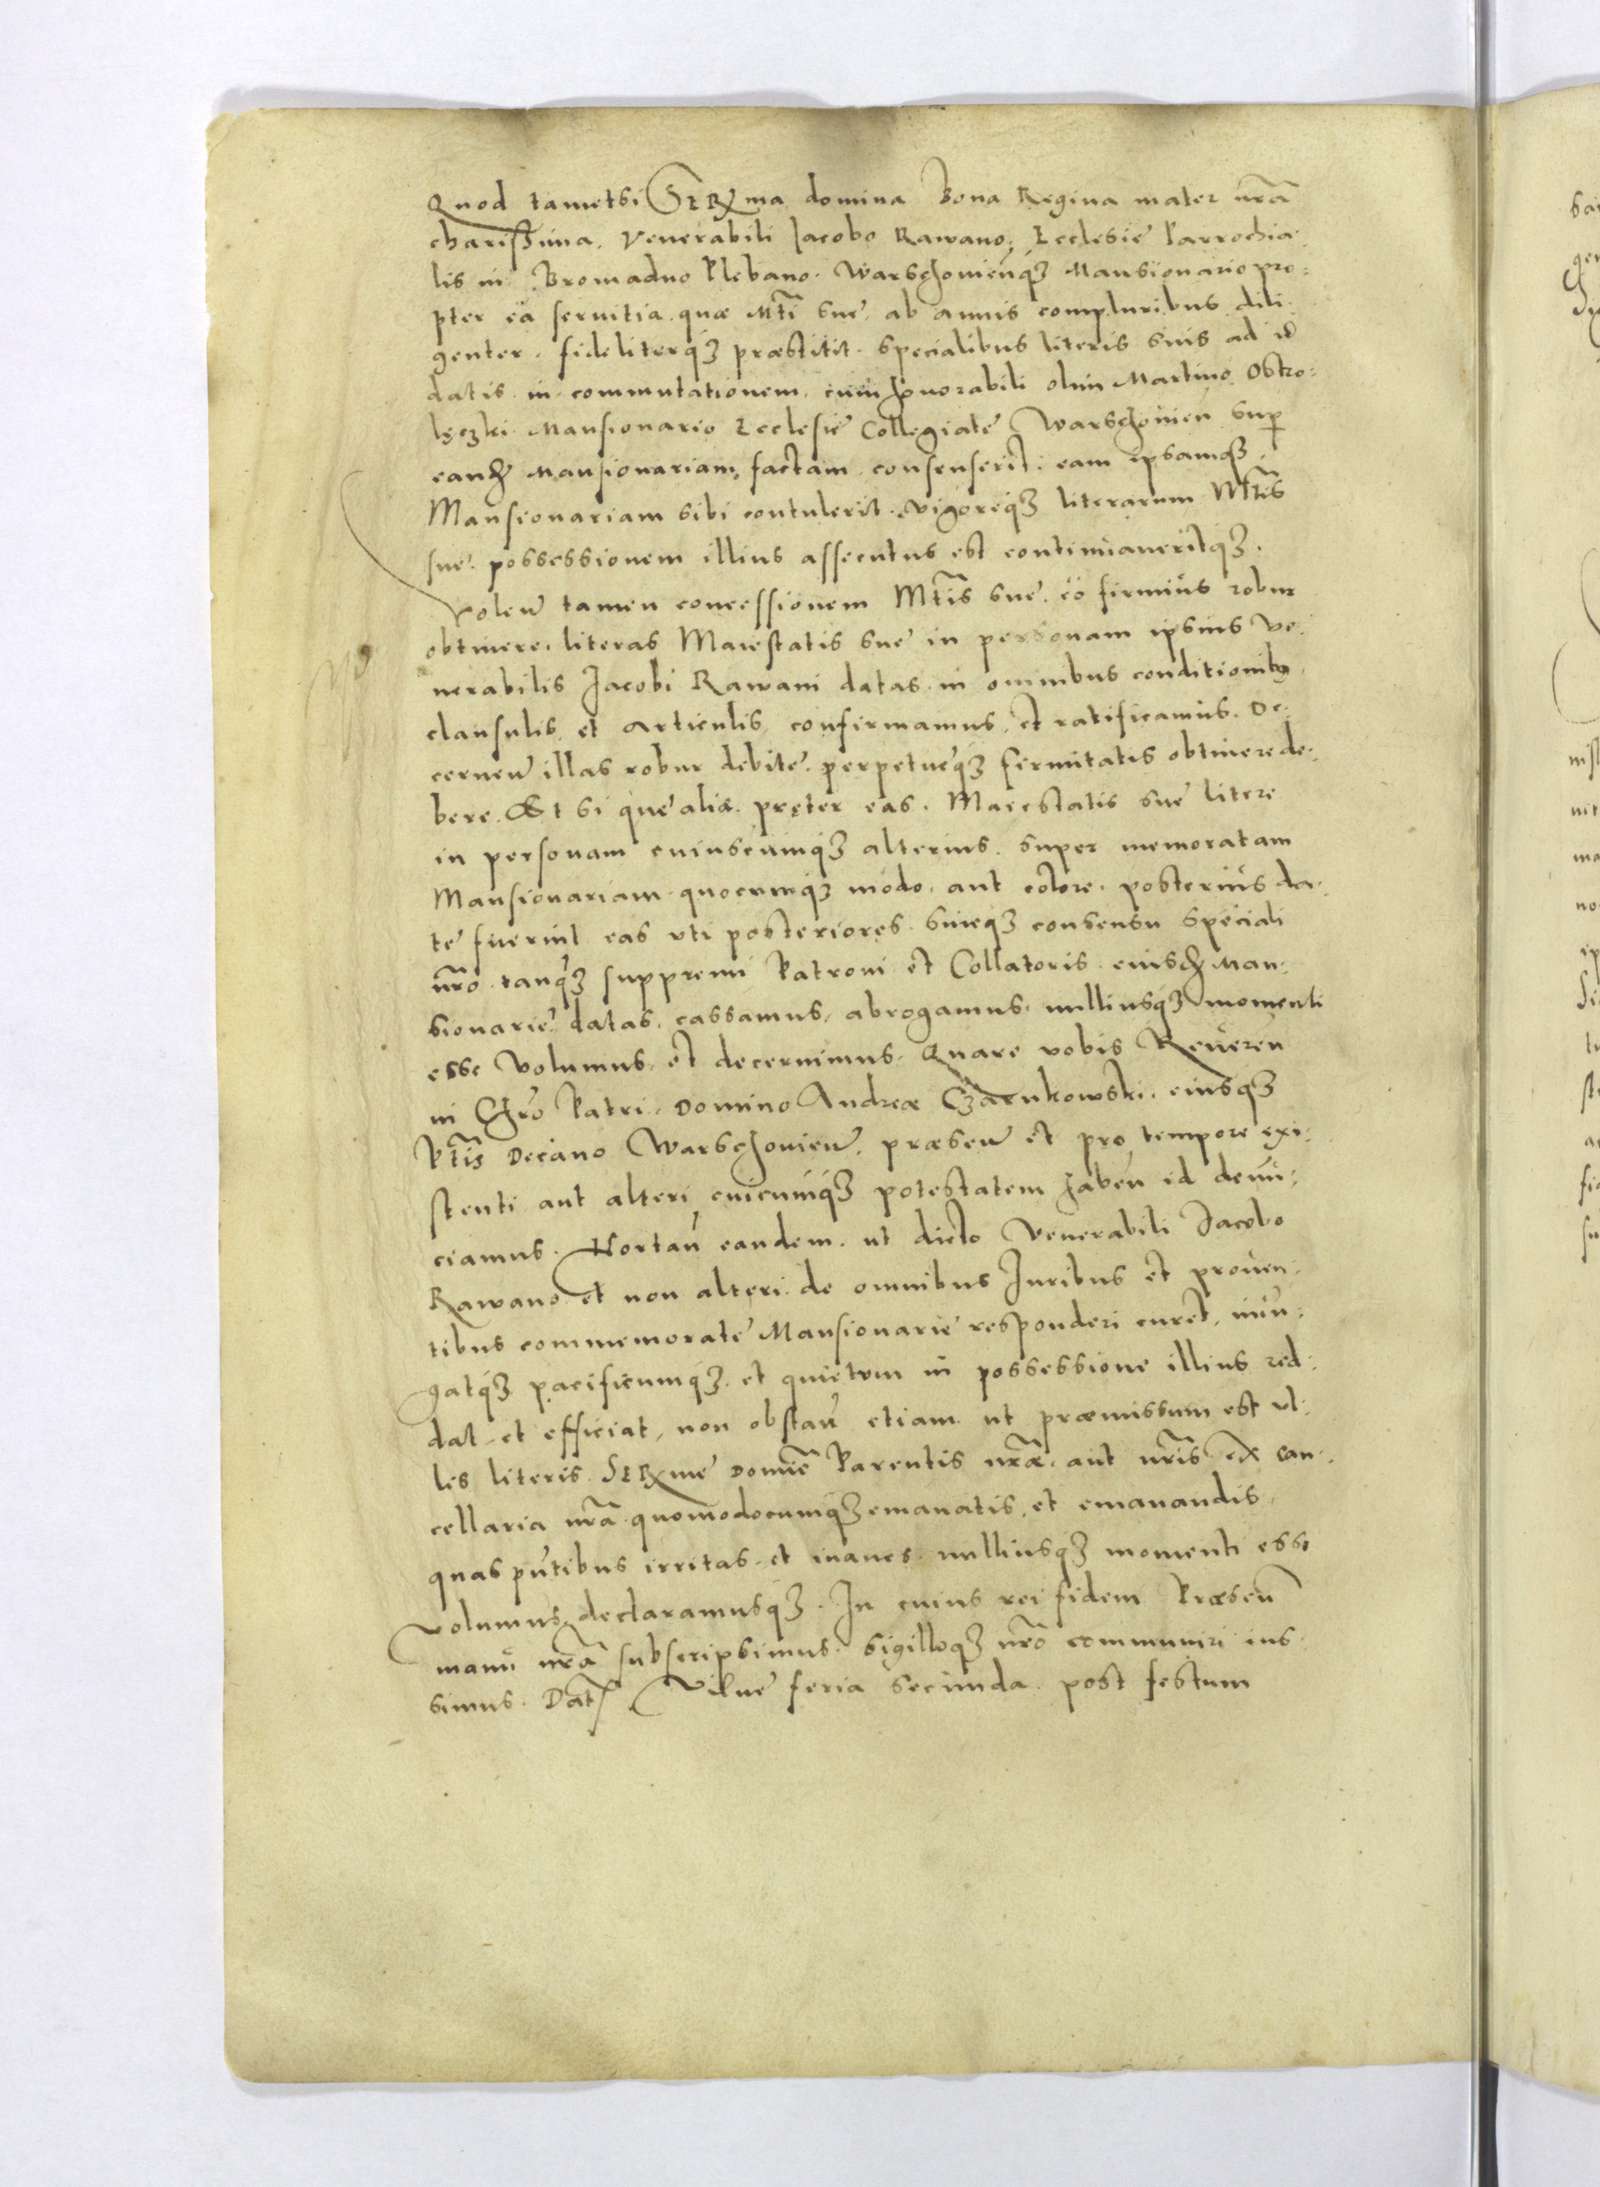 Quod tametsi Serma domina Bona Regina mater nrã
charissima, Venerabili Jacobo Rawano, Ecclesie Parrochia-
lis in Bromadno Plebano. Warschovieñq3 Mansionario pro-
pter ea servitia quæ Mti sue, ab annis compluribus dili-
genter, fideliterq3 præstitit. specialibus literis suis ad id
datis in commutationem, cum honorabili olim Martino Ostro-
lęczki Mansionario Ecclesie Collegiate Warschovień sup
eand Mansionariam, factam consenserit, eam ipsamq3
Mansionariam sibi contulerit. vigoreq3 literarum Mtis
sue possessionem illius assecutus est continuaveritq3.
Voleñ tamen concessionem Mtis sue, eo firmius robur
obtinere, literas Maiestatis sue in personam ipsius Ve-
nerabilis Jacobi Rawani datas in omnibus conditionibus
clausulis et articulis confirmamus et ratificamus. De-
cerneñ illas robur debite, perpetueq3 firmitatis obtinere de-
bere. Et si que aliæ, pręter eas, Maiestatis sue litere
in personam cuiuscumq3 alterius, super memoratam
Mansionariam quocumq3 modo, aut colore, posterius da-
te fuerint eas uti posteriores, sineq3 consensu speciali
nrõ tanq3 suppremi Patroni et Collatoris eiusd Man-
sionarie datas, cassamus, abrogamus, nulliusq3 momenti
esse volumus, et decernimus. Quare vobis Revereñ
in Chrõ Patri, Domino Andreæ Czarnkowski, eiusq3
Ptis Decano Warschovieñ, præseñ et pro tempore exi-
stenti aut alteri cuicumq3 potestatem habeñ id denũ-
ciamus. Hortañ eandem, ut dicto Venerabili Jacobo
Rawano et non alteri de omnibus Juribus et proven-
tibus commemorate Mansionarie responderi curet,
gatq3 pacificumq3 et quietum in possessione illius red-
dat et efficiat, non obstañ etiam ut præmissum est ul-
lis literis Serme Domie Parentis nræ, aut nris ex can-
cellaria nrã quomodocumq3 emanatis, et emanandis
quas pñtibus irritas et inanes nulliusq3 momenti esse
volumus declaramusq3. In cuius rei fidem Præseñ
manu nrã subscripsimus, sigilloq3 nrõ communiri ius-
simus. Dat Vilne feria secunda post festum